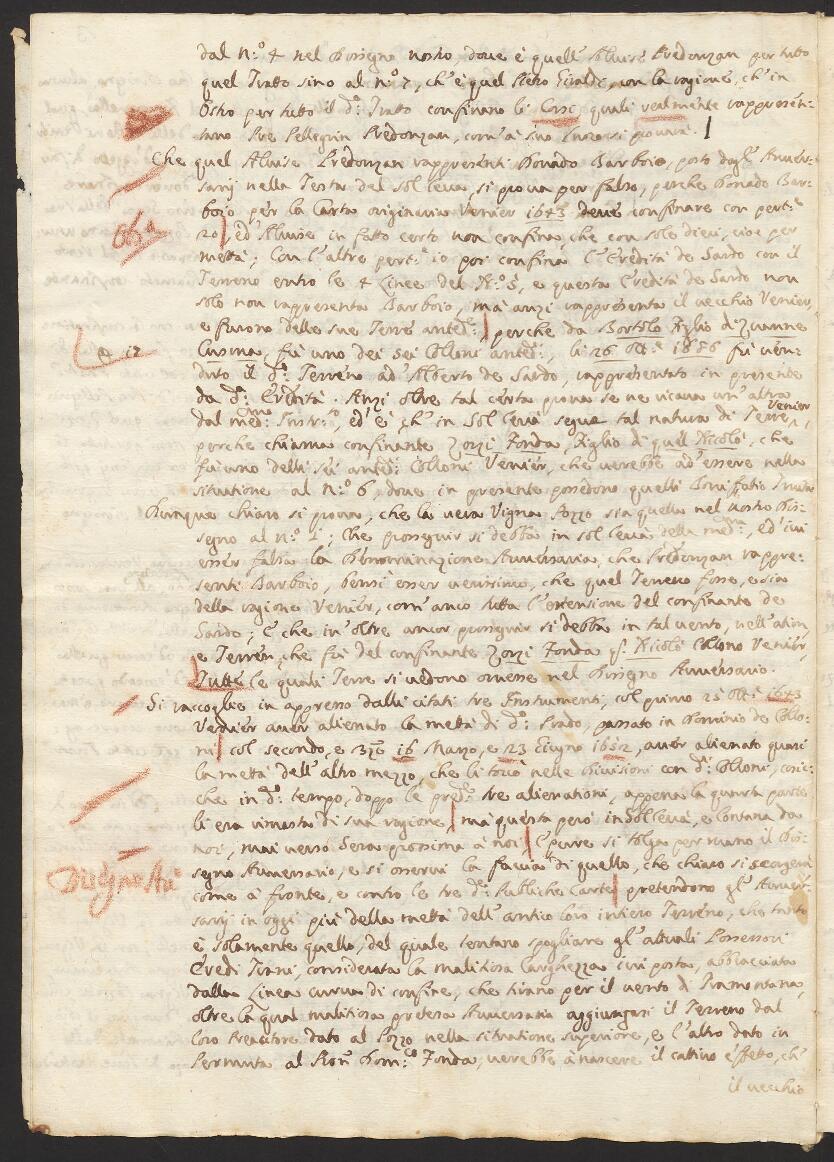 dal N.º 4 nel Dissegno nostro, dove è quell'Aluise Predonzan per tutto
quel Tratto sino al n.º 7, ch'è quel Piero Giraldi, con la ragione, ch'in
Ostro per tutto il d.º Tratto confinano li Corsi quali realmente rappresen-
tano Pre Pellegrin Predonzan, com'à suo luogo si provarà.
Che quel Aluise Predonzan rappresenti Donado Barboio, posto dagl'Auuer-
sarij nella Testa del Sol leuà, si proua per falso, perche Donado Bar-
boio per la Carta originaria Venier 1643 deue confinare con pert.e
20, ed'Aluise in fatto certo non confina, che con sole dieci, cioè per
mettà; Con l'altre pert.e 10 poi confina l'Eredità de Sardo con il
Terreno entro le 4 Linee del N.º 5, e questa Eredità de Sardo non
solo non rappresenta Barboio, mà anzi rappresenta il uecchio Venier,
e furono delle sue Terre anted.e, perche da Bortolo Figlio di Zuanne
Cusma, fù uno dei sei Colloni anted.i, li 26 8bre 1656 fù uen-
duto il d.º Terreno ad'Alberto de Sardo, rappresentato in presente
da d.a Eredità. Anzi oltre tal certa proua se ne ricaua un'altra
dal med.mo Instr.to, ed'è ch'in Sol leuà segue tal natura di Terre Venier,
perche chiama confinante Zorzi Fonda, Figlio di quel Nicolò, che
fù uno delli sei anted.i Colloni Venier, che uerebbe ad'essere nella
situatione al N.º 6, doue in presente possedono quelli Bonifatio
Dunque chiaro si proua, che la uera Vigna Pozzo sia quella nel nostro Dis-
segno al n.º 1; Che prosseguir si debba in sol leuà della med.ma, ed'iui
esser falsa la Denominazione Auuersaria, che Predonzan rappre-
senti Barboio, bensì esser uerissimo, che quel Terreno fosse, e sia
della ragione Venier, com'anco tutta l'estensione del confinante de
Sardo; E che in'oltre ancor prosseguir si debba in tal uento, nell'
e Terren, che fù del confinante Zorzi Fonda q. Nicolò Collono Venier,
Tutte le quali Terre si uedono omesse nel Dissegno Auuersario.
Si raccoglie in appresso dalli citati tre Instrumenti, col primo 25 8bre 1643
Venier auer alienato la metta di d.º Prado, passato in Dominio de Collo-
ni, col secondo, e 3zo 16 Marzo, e 23 Giugno 1652, auer alienato quasi
la metta dell'altro mezzo, che li toccò nelle Diuisioni con d.i Colloni, cosic-
che in d.º tempo, doppo le pred.e tre alienationi, appena la quarta parte
li era rimasta di sua ragione, mà questa però in Sol leuà, e lontana da
noi, mai uerso Sera prossima à noi. E pure si tolga per mano il Dis-
segno Auuersario, e si osserui la faccia di quello, che chiaro si scorgerà
come à fronte, e contro le tre d.e Publiche Carte, pretendono gl'Auuer-
sarij in oggi più della metta dell'antico loro intiero Terreno, che tanto
è solamente quello, del quale tentano spogliare gl'attuali Possessori
Eredi Trani, considerata la malitiosa larghezza iui posta, abbracciata
dalla Linea curua di confine, che tirano per il uento di Tramontana,
oltre la qual malitiosa pretesa Auuersaria aggiungasi il Terreno dal
loro Preautore dato al Pozzo nella situatione superiore, e l'altro dato in
Permuta al Dom.co Fonda, uerebbe à nascere il cattiuo effetto, ch'
il uecchio
Dissegno Au